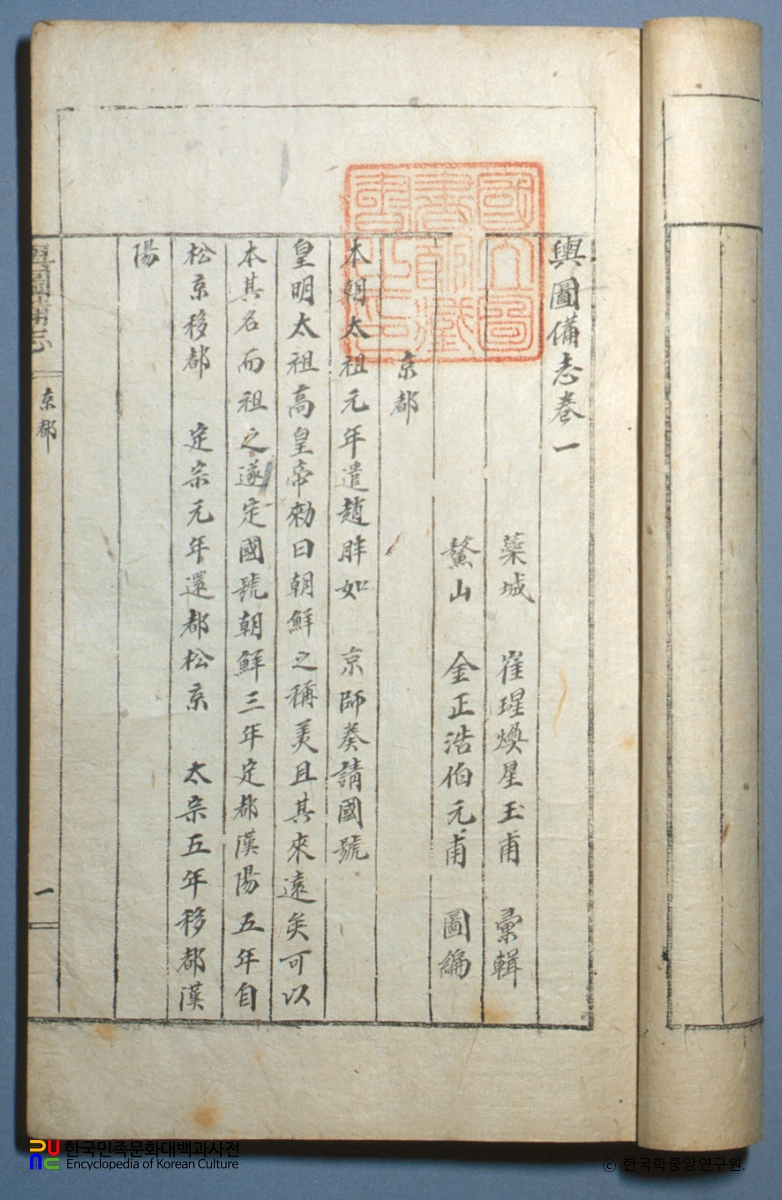 輿圖備志卷一
蘂城 崔瑆煥星玉甫 彙輯
鰲山 金正浩伯元甫 圖編
京都
本朝太祖元年遣趙胖如 京師奏請國號
皇明太祖高皇帝勑曰朝鮮之稱美且其來遠矣可以
本其名而祖之遂定國號朝鮮三年定都漢陽五年自
松京移都 定宗元年還都松京 太宗五年移都漢
陽
輿圖備志 京都 一
國立圖
書館藏
書之印
한국민족문화대백과사전
Encyclopedia of Korean Culture
© 한국학중앙연구원